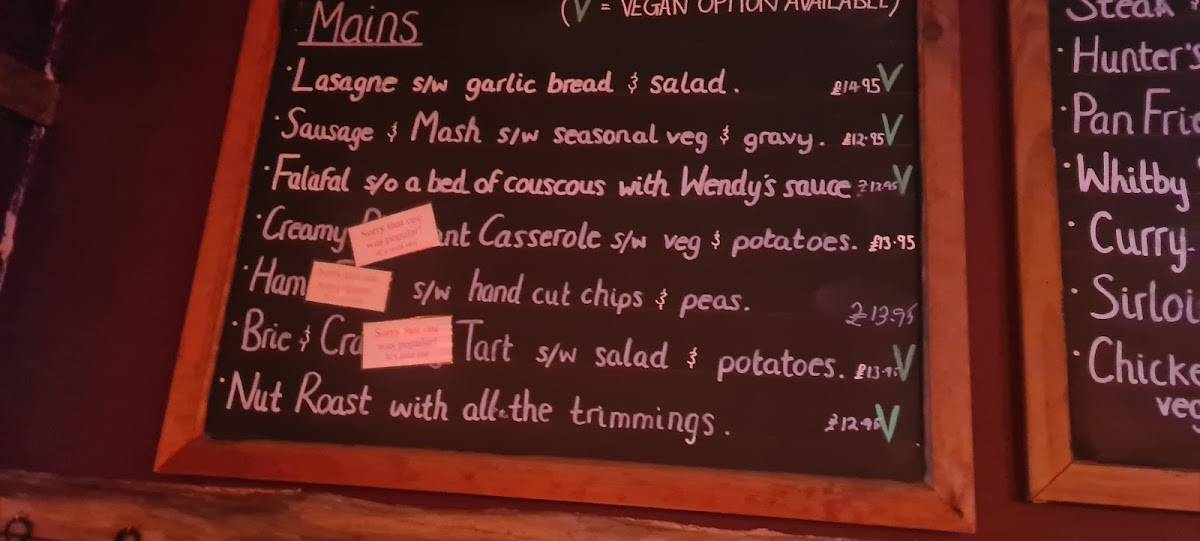 Mains
(V = VEGAN OPTION AVAILABLE)
·Lasagne s/w garlic bread & salad. £14.95 V
·Sausage & Mash s/w seasonal veg & gravy. £12.95 V
·Falafal s/o a bed of couscous with Wendy's sauce £12.95 V
·Creamy nt Casserole s/w veg & potatoes. £13.95
Sorry that one
was popular!
it's sold out
·Ham s/w hand cut chips & peas. £13.95
·Brie & Cra Tart s/w salad & potatoes. £13.9 V
Sorry that one
was popular!
it's sold out
·Nut Roast with all the trimmings. £12.95 V
Steak
·Hunter's
·Pan Frie
·Whitby
·Curry
·Sirloi
·Chicke
veg